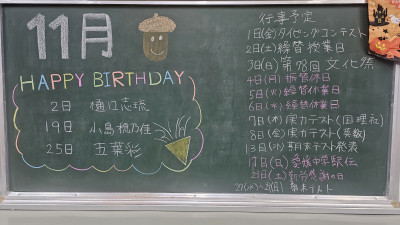 11月
HAPPY BIRTHDAY
2日 樋口志琉
19日 小島梳乃佳
25日 五葉彩
行事予定
1日(金)タイピングコンテスト
2日(土)繰替授業日
3日(日)第78回文化祭
4日(月)振替休日
5日(火)繰替休業日
6日(水)繰替休業日
7日(木)実力テスト(国理社)
8日(金)実力テスト(英数)
13日(水)期末テスト発表
17日(日)愛媛中学駅伝
23日(土)勤労感謝の日
期末テスト